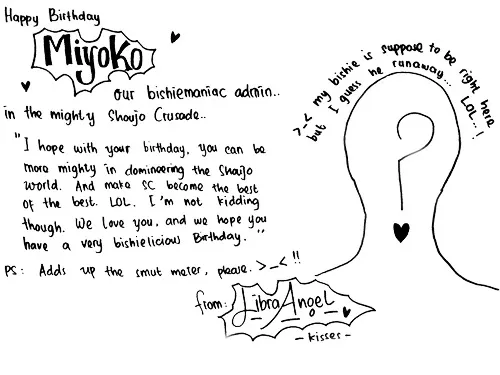 Happy Birthday
Miyoko
our bishiemaniac admin..
in the mighty Shoujo Crusade..
"I hope with your birthday, you can be
more mighty in domineering the Shoujo
world. And make SC become the best
of the best. LOL. I'm not kidding
though. We love you, and we hope you
have a very bishielicious Birthday."
PS: Adds up the smut meter, please. >_< !!
from: LibraAngel
- kisser -
>_< my bishie is suppose to be right here
but I guess he runaway... LOL..!
?